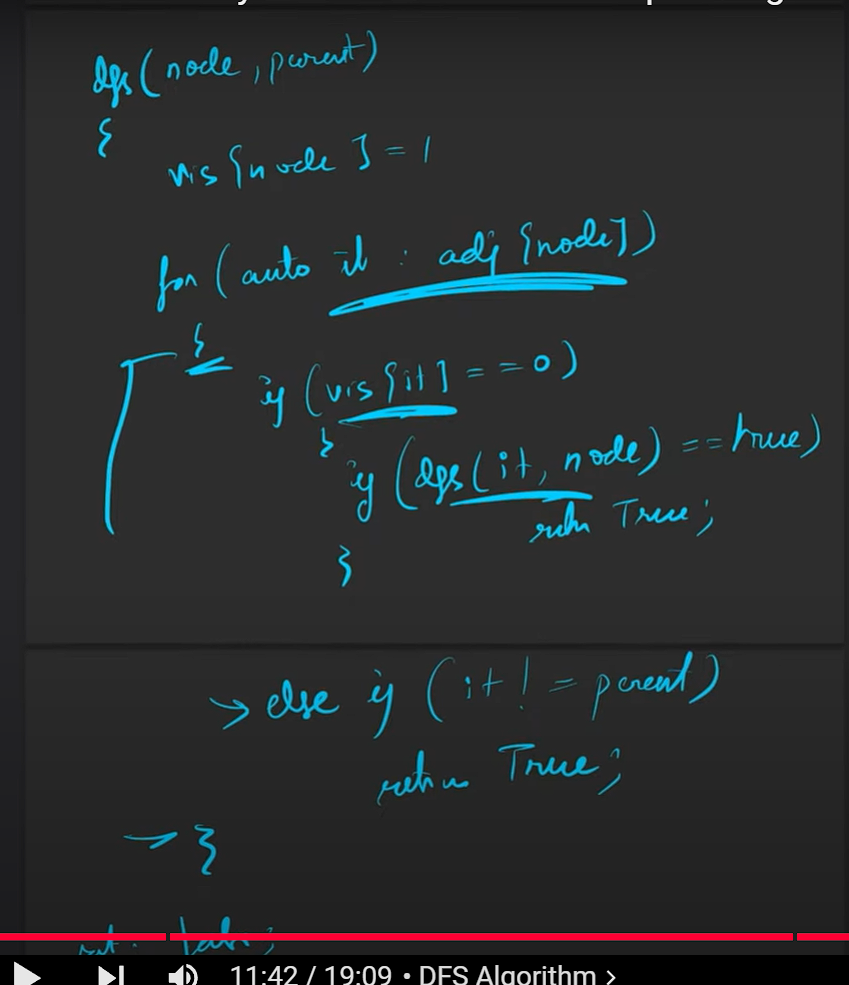 dfs(node, parent)
{
vis[node] = 1
for(auto it : adj[node])
{
if(vis[it] == 0)
{
if(dfs(it, node) == true)
return True;
}
> else if (it != parent)
return True;
→ }
11:42 / 19:09 • DFS Algorithm >